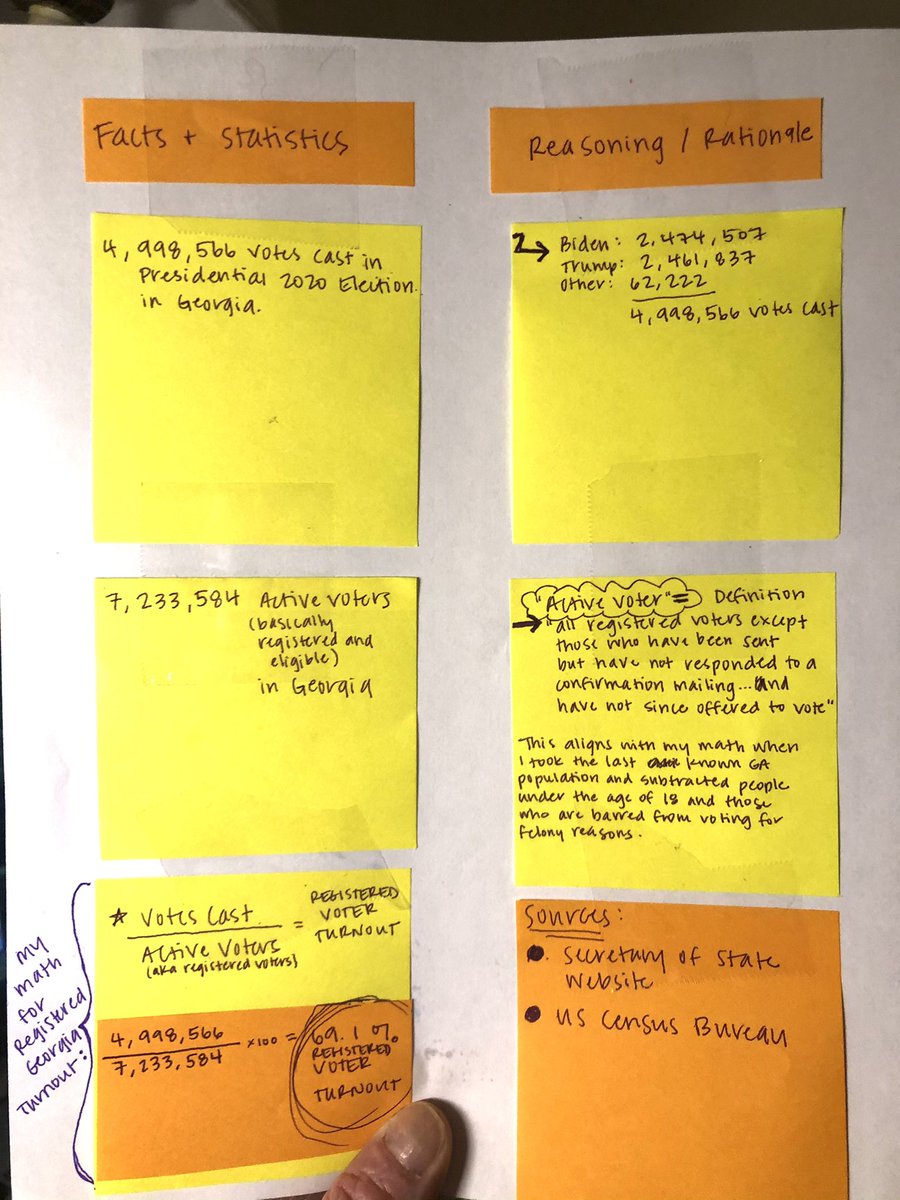 Facts + Statistics
4,998,566 votes cast in
Presidential 2020 Election
in Georgia.
7,233,584 Active voters
(basically
registered and
eligible)
in Georgia
my
math
for
Registered
Georgia
Turnout:
* Votes Cast = REGISTERED
VOTER
TURNOUT
Active Voters
(aka registered voters)
4,998,566 ×100 = 69.1%
7,233,584
REGISTERED
VOTER
TURNOUT
Reasoning / Rationale
Biden: 2,474,507
Trump: 2,461,837
Other: 62,222
4,998,566 votes cast
"Active Voter" = Definition
"all registered voters except
those who have been sent
but have not responded to a
confirmation mailing... and
have not since offered to vote"
This aligns with my math when
I took the last known GA
population and subtracted people
under the age of 18 and those
who are barred from voting for
felony reasons.
Sources:
• Secretary of State
Website
• US Census Bureau